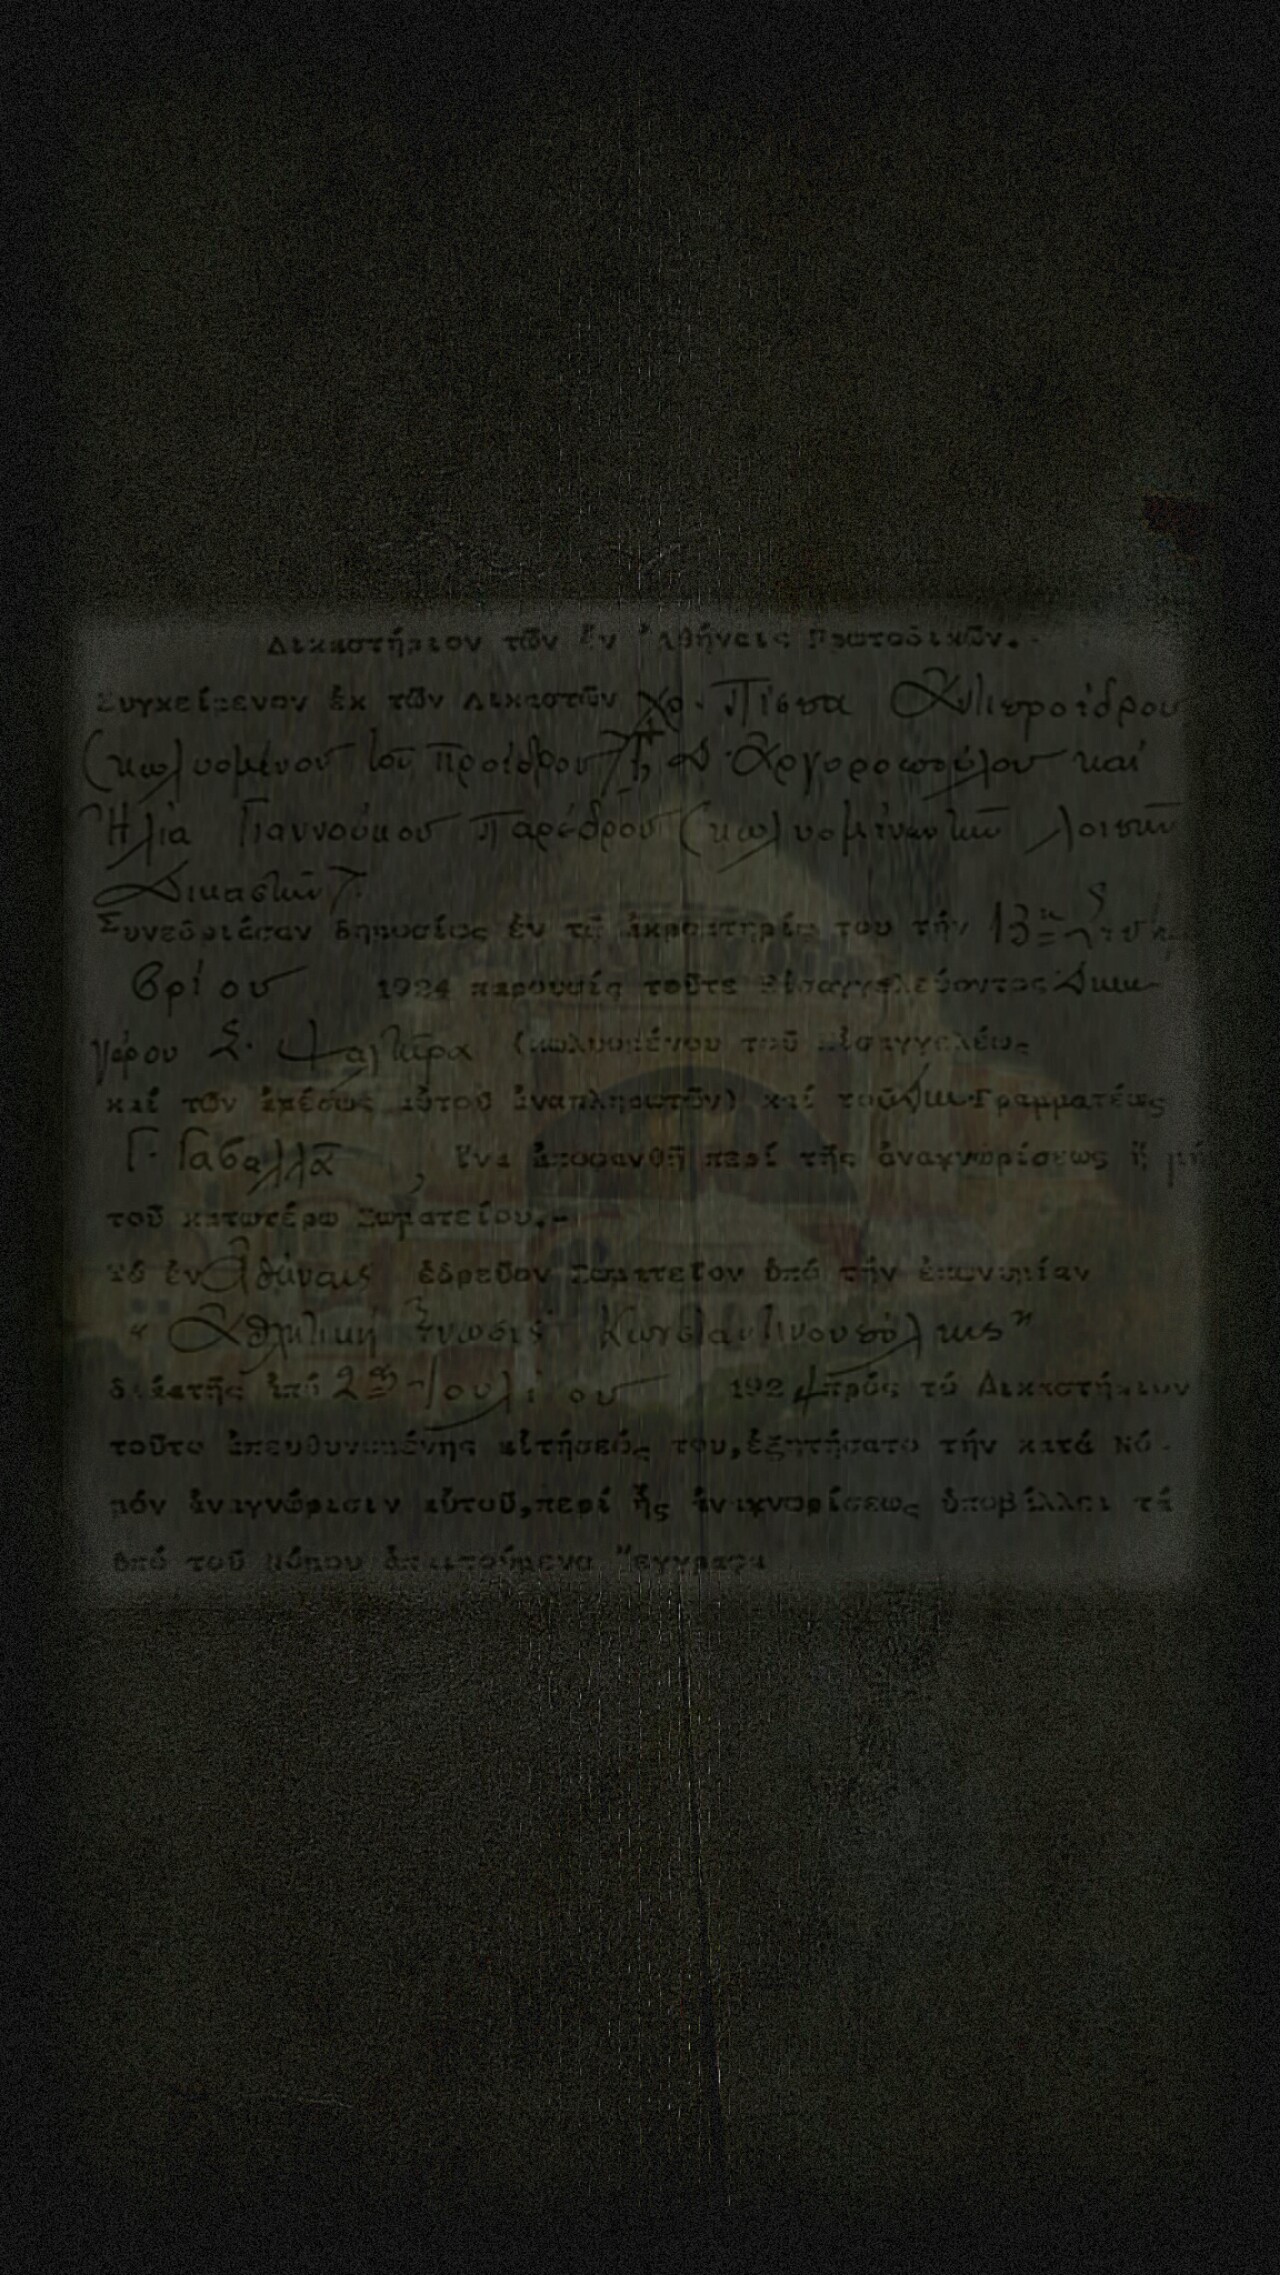 Δικαστήριον τῶν ἐν Ἀθήναις Πρωτοδικῶν.
Συγκείμενον ἐκ τῶν Δικαστῶν Χρ. Πίσπα Ἀντιπροέδρου
(κωλυομένου τοῦ Προέδρου) Ἀργυροπούλου καί
Ἠλία Γιαννούκου Παρέδρου (κωλυομένων τῶν λοιπῶν
Δικαστῶν).
Συνεδριάσαν δημοσίως ἐν τῷ ἀκροατηρίῳ του τήν 13ην Σεπτεμ-
βρίου 1924 παρουσίᾳ τοῦτε Εἰσαγγελεύοντος Δικη-
γόρου Σ. (κωλυομένου τοῦ Εἰσαγγελέως
καί τῶν ἀμέσως αὐτοῦ ἀναπληρωτῶν) καί τοῦ Γραμματέως
Γ. Γαβαλλᾶ, ἵνα ἀποφανθῇ περί τῆς ἀναγνωρίσεως ἤ μή
τοῦ κατωτέρω Σωματείου.-
Τό ἐν Ἀθήναις ἑδρεῦον Σωματεῖον ὑπό τήν ἐπωνυμίαν
"Ἀθλητική Ἕνωσις Κωνσταντινουπόλεως"
διά τῆς ἀπό 2ας Ἰουλίου 1924 πρός τό Δικαστήριον
τοῦτο ἀπευθυνομένης αἰτήσεώς του, ἐξητήσατο τήν κατά Νό-
μόν ἀναγνώρισιν αὐτοῦ, περί ἧς ἀναγνωρίσεως ὑποβάλλει τά
ὑπό τοῦ Νόμου ἀπαιτούμενα ἔγγραφα